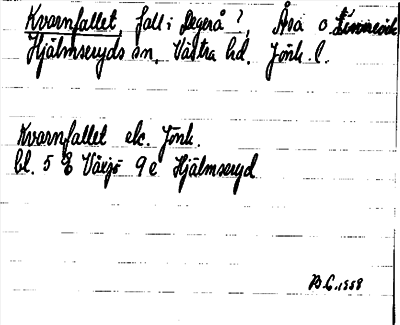 Kvarnfallet, fall i Degerå?, Åsa o
Hjälmseryds sn. Västra hd. Jönk. l.
Kvarnfallet ek. Jönk.
bl. 5 E Växjö 9 e Hjälmseryd
B.C. 1958